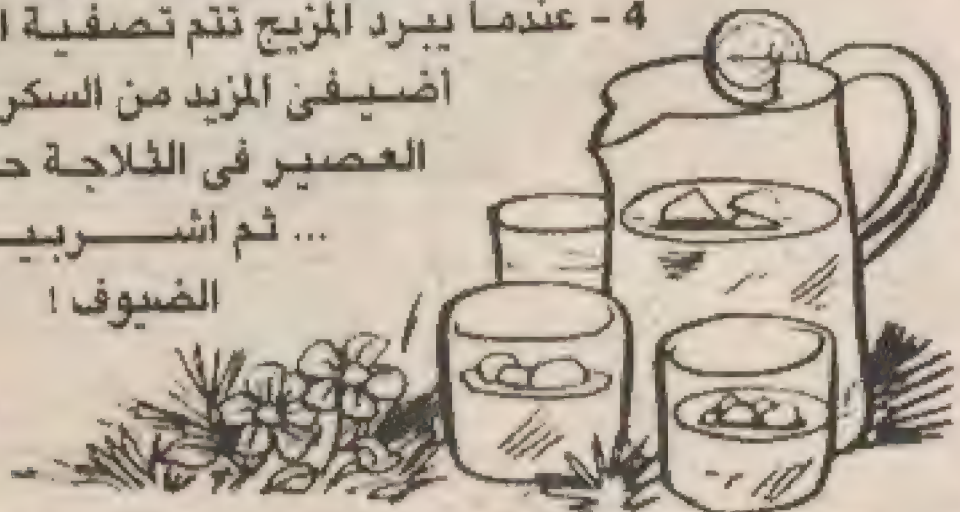 4 - عندما يبرد المزيج تتم تصفية
أضيفى المزيد من السكر
العصير فى الثلاجة
... ثم
الضيوف !